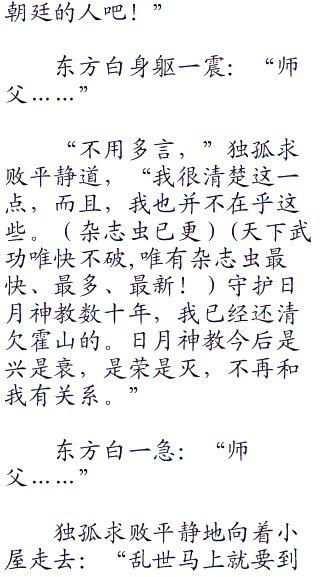 朝廷的人吧！”
东方白身躯一震：“师
父……”
“不用多言，”独孤求
败平静道，“我很清楚这一
点，而且，我也并不在乎这
些。（杂志虫已更）(天下武
功唯快不破,唯有杂志虫最
快、最多、最新！）守护日
月神教数十年，我已经还清
欠霍山的。日月神教今后是
兴是衰，是荣是灭，不再和
我有关系。”
东方白一急：“师
父……”
独孤求败平静地向着小
屋走去：“乱世马上就要到